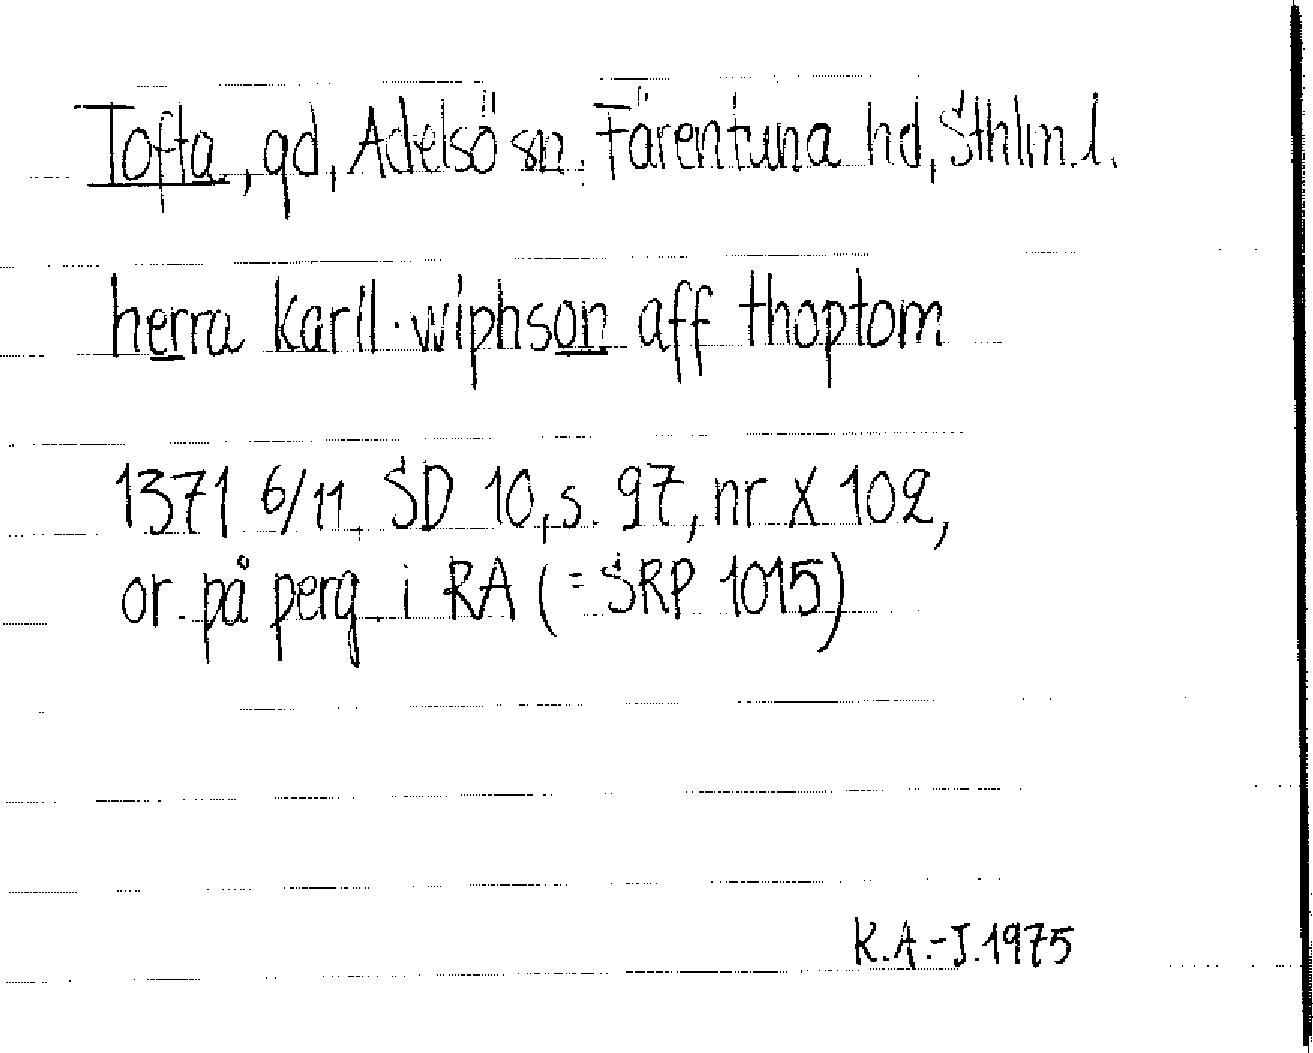 Tofta, gd, Adelsö sn. Färentuna hd, Sthlm.l.
herra karll·wiphson aff thoptom
1371 6/11 SD 10, s. 97, nr X 102,
or på perg i RA (=SRP 1015)
K.A.-J.1975